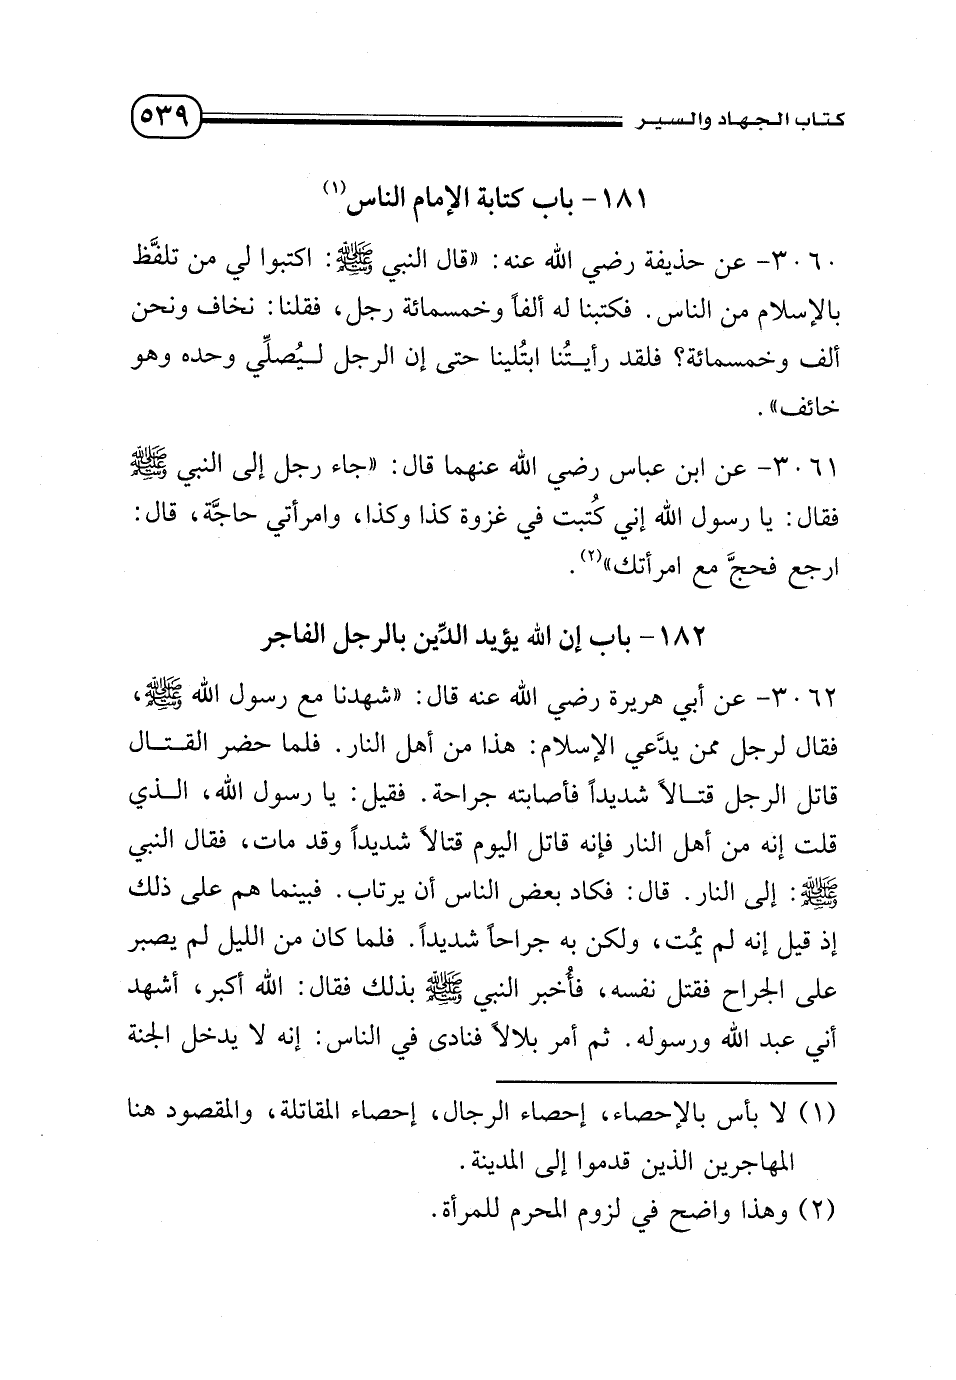 كتاب الجهاد والسير ٥٣٩
١٨١- باب كتابة الإمام الناس(١)
٣٠٦٠- عن حذيفة رضي الله عنه: «قال النبي ﷺ: اكتبوا لي من تلفَّظ
بالإسلام من الناس. فكتبنا له ألفاً وخمسمائة رجل، فقلنا: نخاف ونحن
ألف وخمسمائة؟ فلقد رأيتُنا ابتُلينا حتى إن الرجل ليُصلِّي وحده وهو
خائف».
٣٠٦١- عن ابن عباس رضي الله عنهما قال: «جاء رجل إلى النبي ﷺ
فقال: يا رسول الله إني كُتبت في غزوة كذا وكذا، وامرأتي حاجَّة، قال:
ارجع فحجَّ مع امرأتك»(٢).
١٨٢- باب إن الله يؤيد الدِّين بالرجل الفاجر
٣٠٦٢- عن أبي هريرة رضي الله عنه قال: «شهدنا مع رسول الله ﷺ،
فقال لرجل ممن يدَّعي الإسلام: هذا من أهل النار. فلما حضر القتال
قاتل الرجل قتالاً شديداً فأصابته جراحة. فقيل: يا رسول الله، الذي
قلت إنه من أهل النار فإنه قاتل اليوم قتالاً شديداً وقد مات، فقال النبي
ﷺ: إلى النار. قال: فكاد بعض الناس أن يرتاب. فبينما هم على ذلك
إذ قيل إنه لم يمُت، ولكن به جراحاً شديداً. فلما كان من الليل لم يصبر
على الجراح فقتل نفسه، فأُخبر النبي ﷺ بذلك فقال: الله أكبر، أشهد
أني عبد الله ورسوله. ثم أمر بلالاً فنادى في الناس: إنه لا يدخل الجنة
(١) لا بأس بالإحصاء، إحصاء الرجال، إحصاء المقاتلة، والمقصود هنا
المهاجرين الذين قدموا إلى المدينة.
(٢) وهذا واضح في لزوم المحرم للمرأة.